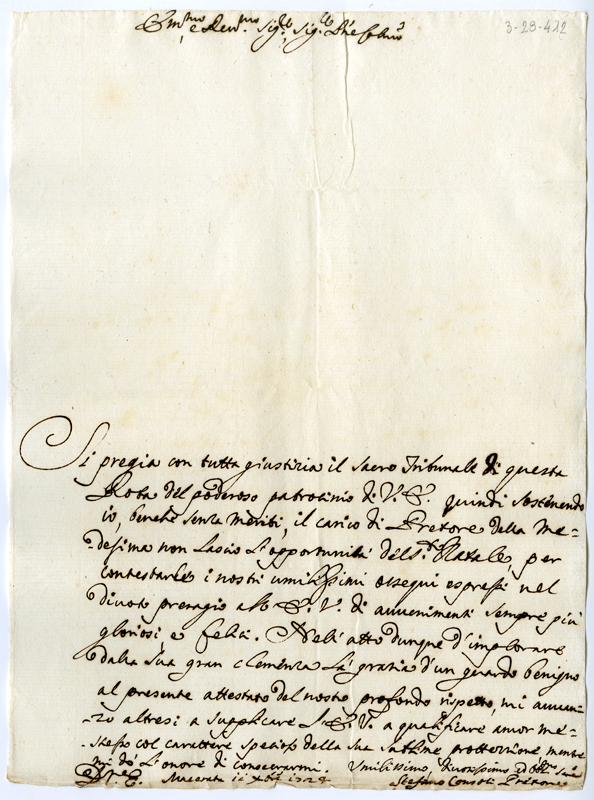 3-28-412
Em.mo e Rev.mo Sig.r Sig.r
Si pregia con tutta giustizia il Sacro Tribunale di questa
Rota del poderoso patrocinio di V. E. quindi sostenendo
io, benche senza meriti, il carico di Pretore della me=
=desima non lascio l'opportunità del S. Natale, per
contestarle i nostri umilissimi ossequi espressi nel
divoto presagio all' E. V. di auuenimenti sempre più
gloriosi e felici. Nell' atto dunque d'implorare
dalla sua gran clemenza la grazia d'un guardo benigno
al presente attestato del nostro profondo rispetto, mi auuan=
=zo altresi a supplicare l' E. V. a qualificare ancor me=
=stesso col carattere specioso della sua sublime prottezzione mentre
mi dò l'onore di Umilissimo, diuotissimo
Di V. E. Macerata Stefano Consoli Pretore